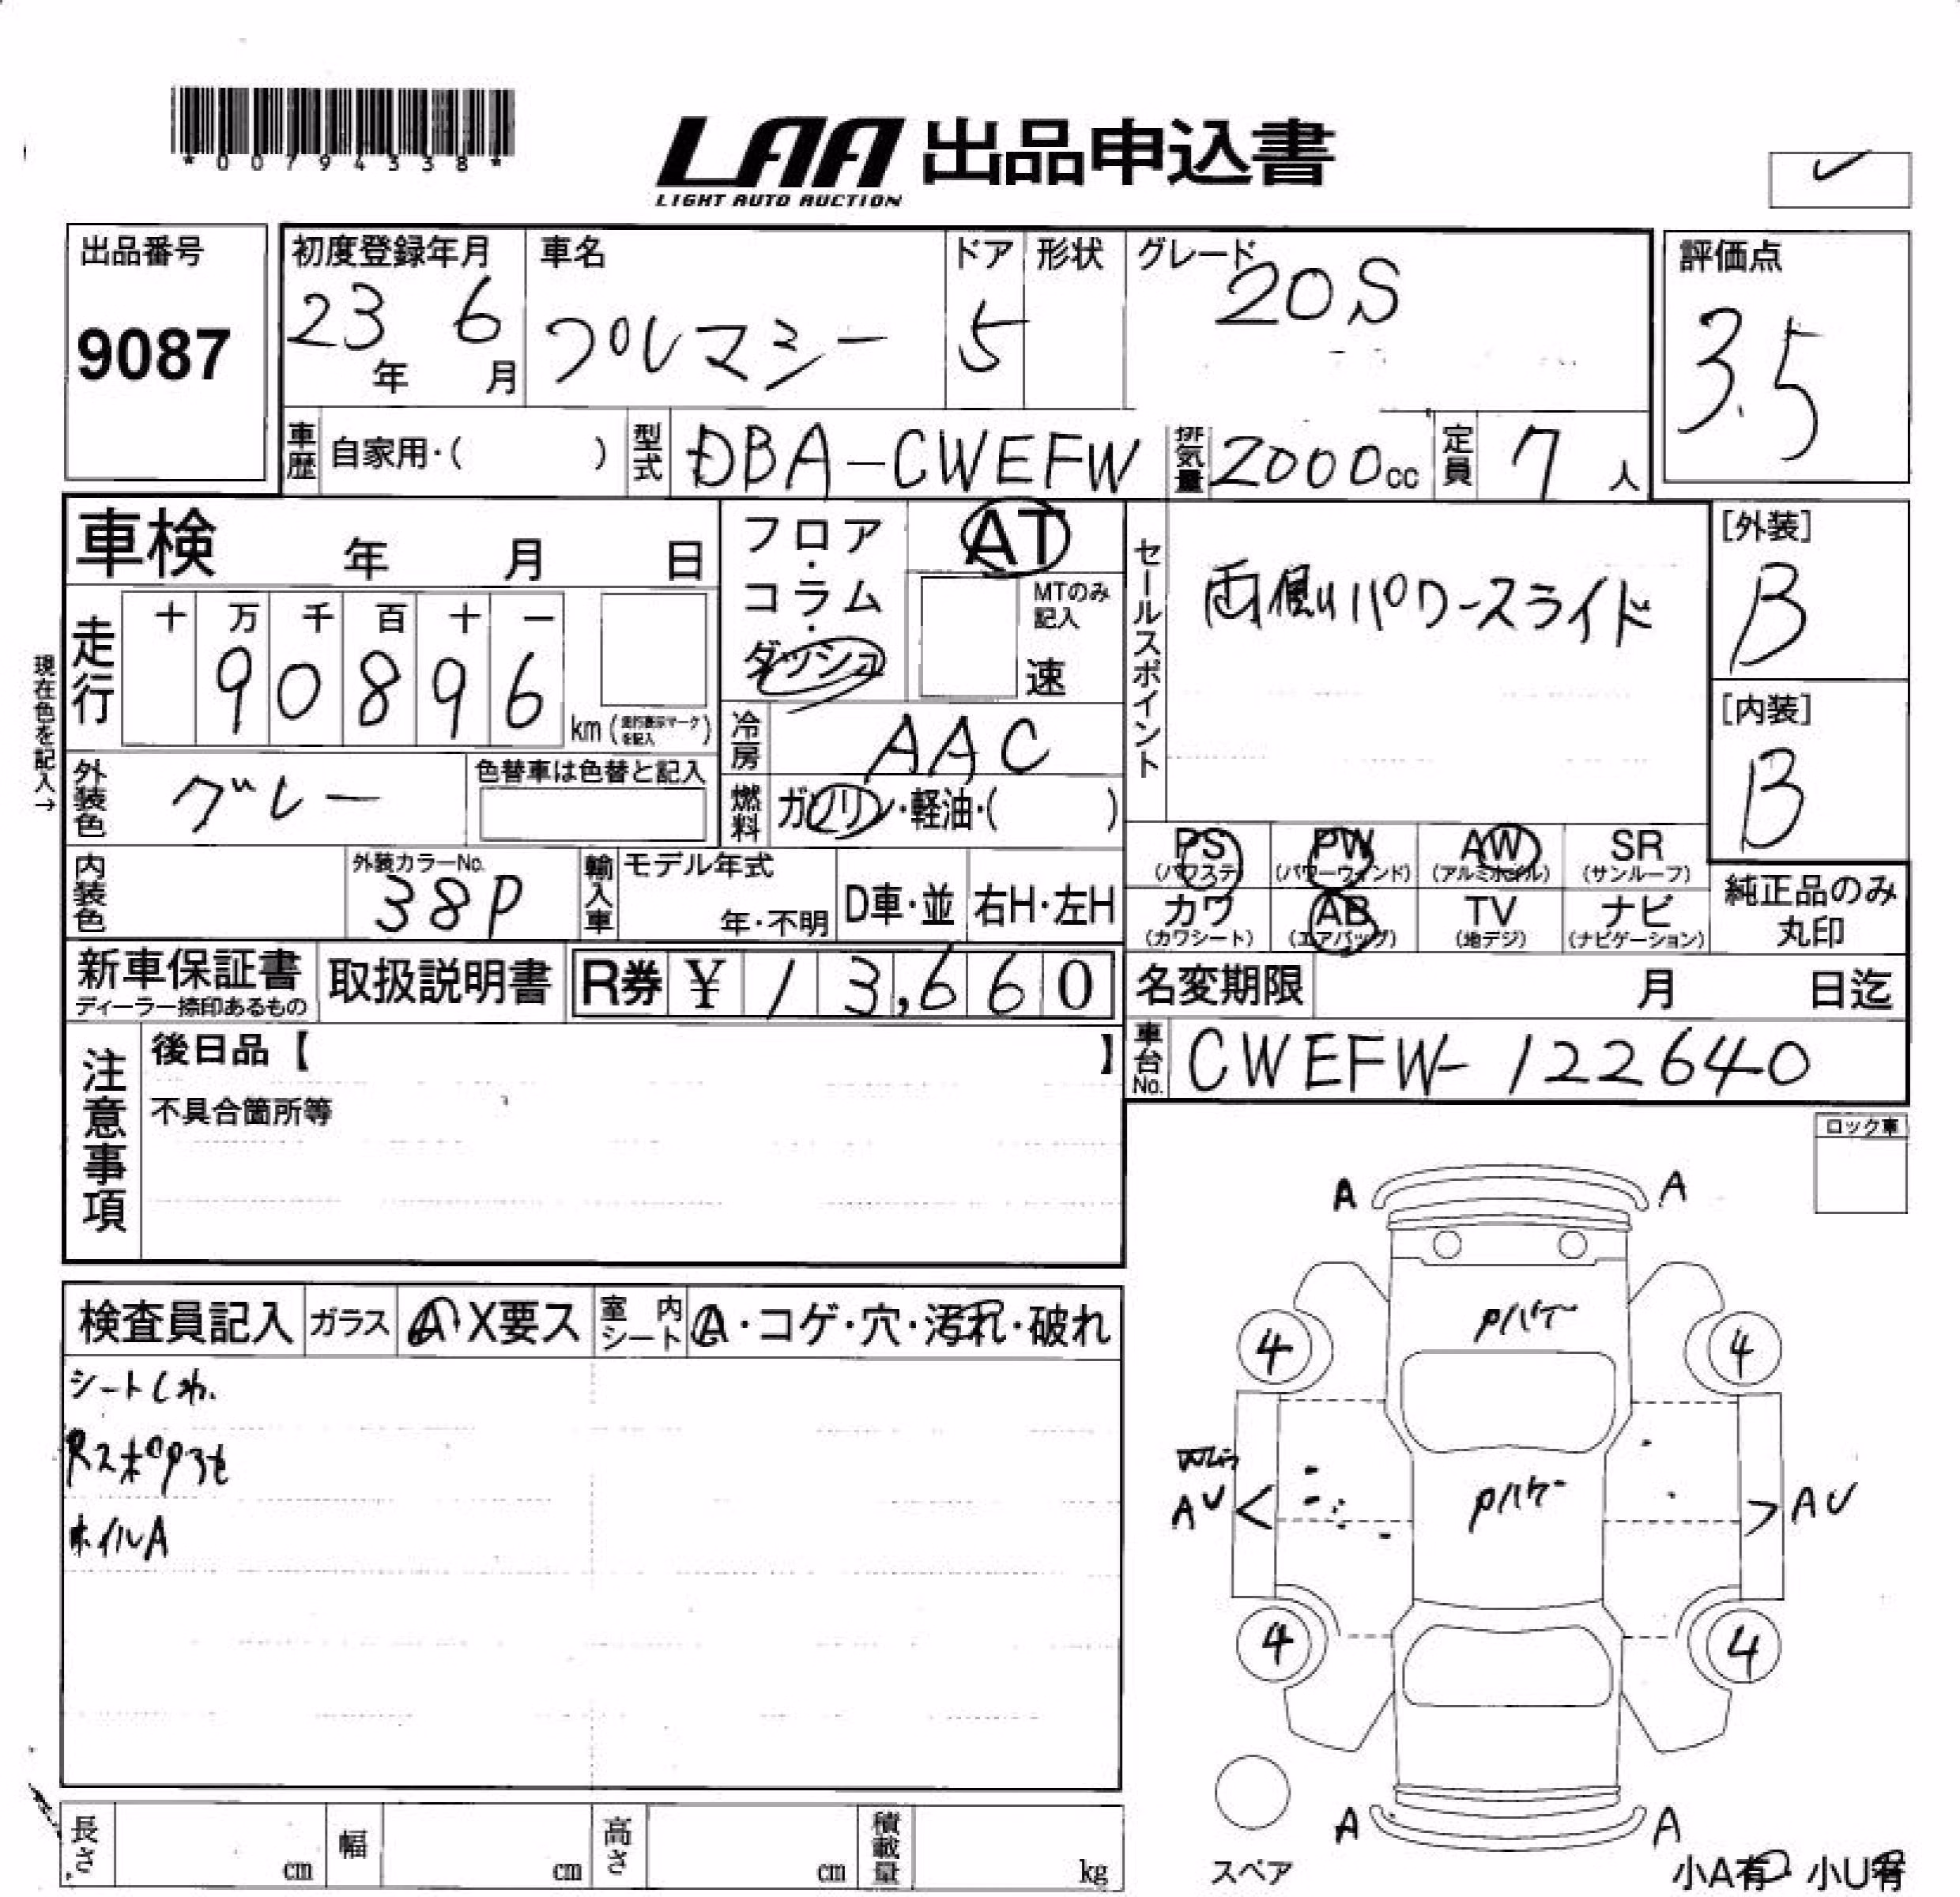 *00794338*
LAA 出品申込書
LIGHT AUTO AUCTION
出品番号
9087
初度登録年月
23年 6月
車名
プレマシー
ドア
5
形状
グレード
20S
評価点
3.5
車歴 自家用・( )
型式 DBA-CWEFW
排気量 2000cc
定員 7人
車検 年 月 日
フロア・コラム・ダッシュ
AT
MTのみ記入
速
セールスポイント
両側パワースライド
[外装]
B
[内装]
B
現在色を記入→
走行
十 万 千 百 十 一
9 0 8 9 6
km (走行表示マークを記入)
冷房 AAC
外装色 グレー
色替車は色替と記入
燃料 ガソリン・軽油・( )
PS (パワステ)
PW (パワーウィンド)
AW (アルミホイル)
SR (サンルーフ)
カワ (カワシート)
AB (エアバッグ)
TV (地デジ)
ナビ (ナビゲーション)
純正品のみ丸印
内装色
外装カラーNo.
38P
輸入車
モデル年式
年・不明
D車・並
右H・左H
新車保証書
ディーラー捺印あるもの
取扱説明書
R券 ¥ 13,660
名変期限 月 日迄
車台No. CWEFW-122640
注意事項
後日品【 】
不具合箇所等
ロック車
検査員記入
ガラス A・X要ス
室内シート A・コゲ・穴・汚れ・破れ
シートしわ.
ホイルA
A A
Pハゲ
4 4
Pハゲ
AU AU
4 4
A A
スペア
小A有・小U有
長さ cm
幅 cm
高さ cm
積載量 kg